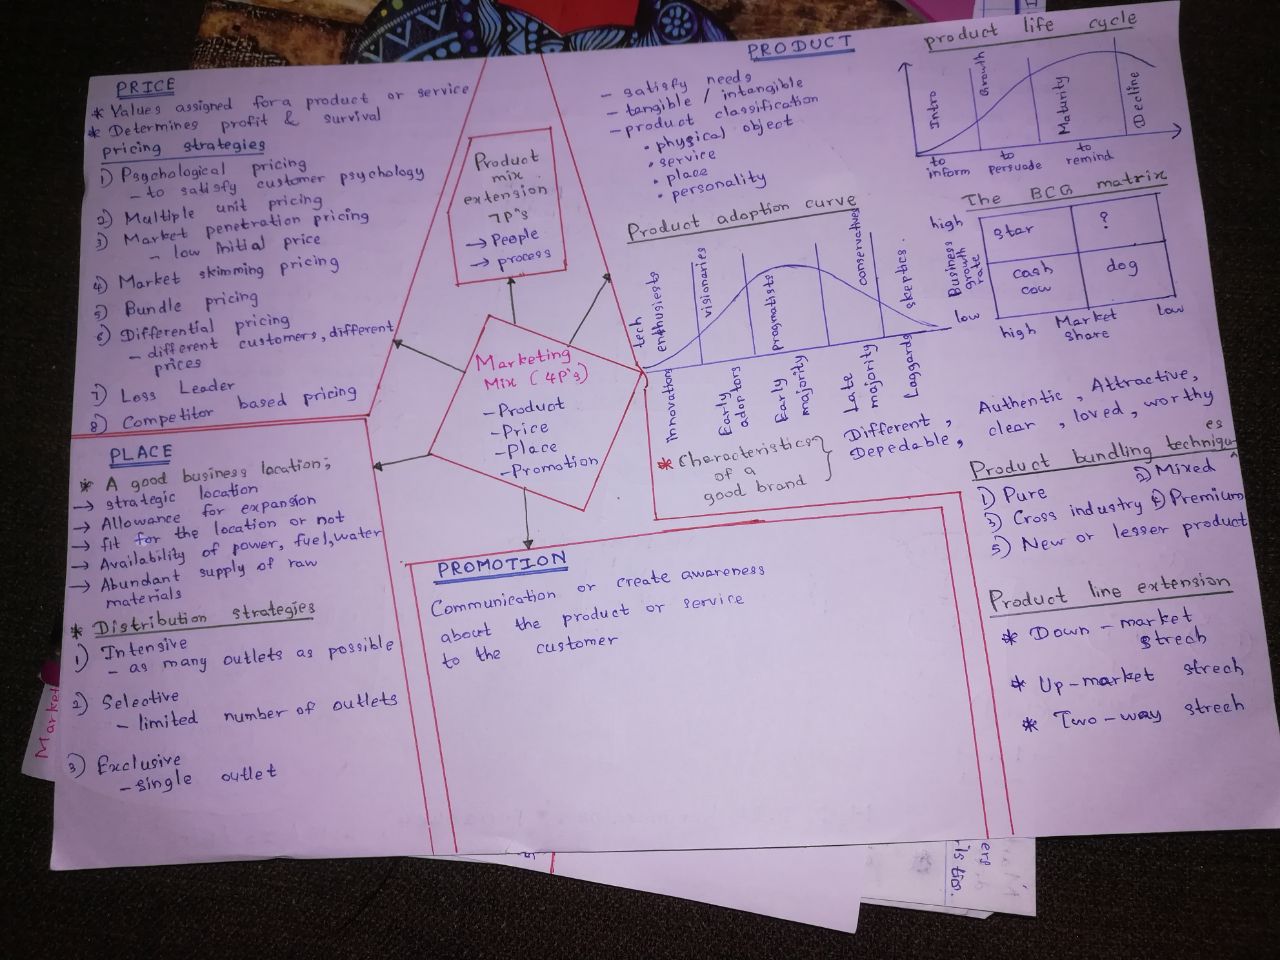 PRICE
* Values assigned for a product or service
* Determines profit & survival
pricing strategies
1) Psychological pricing
- to satisfy customer psychology
2) Multiple unit pricing
3) Market penetration pricing
- low initial price
4) Market skimming pricing
5) Bundle pricing
6) Differential pricing
- different customers, different
prices
7) Loss Leader
8) Competitor based pricing
Product
mix
extension
7P's
→ People
→ process
Marketing
Mix (4P's)
- Product
- Price
- Place
- Promotion
PRODUCT
- satisfy needs
- tangible / intangible
- product classification
• physical object
• service
• place
• personality
product life cycle
Intro
Growth
Maturity
Decline
to
inform
to
persuade
to
remind
Product adoption curve
tech
enthusiests
visionaries
pragmatists
conservatives
skeptics.
Innovations
Early
adoptors
Early
majority
Late
majority
Laggards
The BCG matrix
high
Business
growth
rate
low
star
?
cash
cow
dog
high
Market
share
low
* Characteristics
of a
good brand
Different, Authentic, Attractive,
Depedable, clear, loved, worthy
Product bundling techniques
1) Pure
2) Mixed
3) Cross industry
4) Premium
5) New or lesser product
Product line extension
* Down-market
strech
* Up-market strech
* Two-way strech
PLACE
* A good business location;
→ strategic location
→ Allowance for expansion
→ fit for the location or not
→ Availability of power, fuel, water
→ Abundant supply of raw
materials
* Distribution strategies
1) Intensive
- as many outlets as possible
2) Selective
- limited number of outlets
3) Exclusive
- single outlet
PROMOTION
Communication or create awareness
about the product or service
to the customer
Market